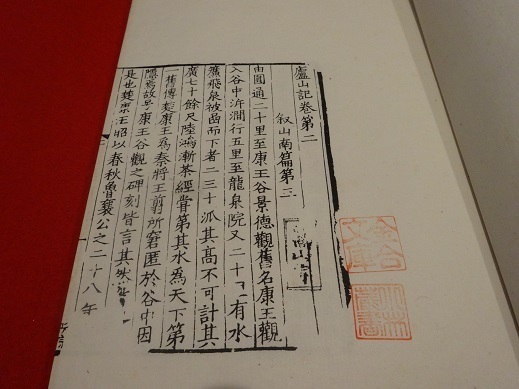 廬山記卷第二
叙山南篇第三
高山寺
由圓通二十里至康王谷景德觀舊名康王觀
入谷中泝澗行五里至龍泉院又二十有水
飛泉被嵓而下者二三十派其髙不可計其
廣七十餘尺陸鴻漸茶經甞第其水為天下第
一舊傳楚康王為秦將王翦所窘匿於谷中因
隱焉故号康王谷觀之碑刻皆言其然
是也楚康王昭以春秋魯襄公之二十八年